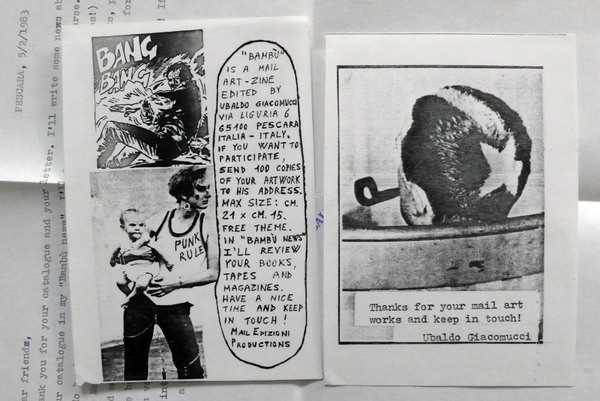 PESCARA, 5/2/1983
your catalogue and your letter. I'll write some news
catalogue in my "Bambù news"
BANG
BANG
PUNK
RULE
"BAMBÙ"
IS A MAIL
ART-ZINE
EDITED BY
UBALDO GIACOMUCCI
VIA LIGURIA 6
65100 PESCARA
ITALIA - ITALY.
IF YOU WANT TO
PARTICIPATE,
SEND 100 COPIES
OF YOUR ARTWORK
TO HIS ADDRESS.
MAX SIZE: CM.
21 x CM. 15.
FREE THEME.
IN "BAMBÙ NEWS"
I'LL REVIEW
YOUR BOOKS,
TAPES AND
MAGAZINES.
HAVE A NICE
TIME AND KEEP
IN TOUCH!
MAIL EDIZIONI
PRODUCTIONS
Thanks for your mail art
works and keep in touch!
Ubaldo Giacomucci